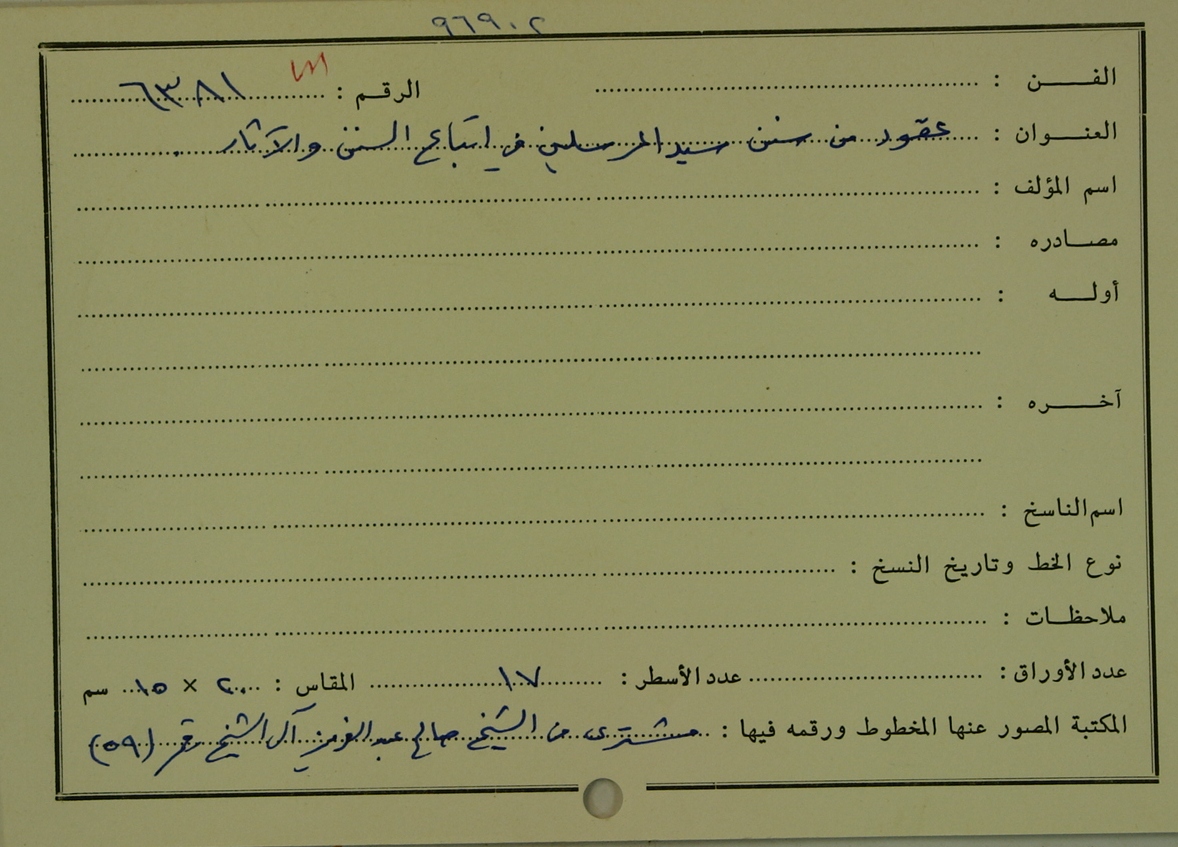 ٩٦٩٠٢
الفـــــن : الرقـم : ٦٣٨١
العنـوان : عقود من سنن سيد المرسلين في اتباع السنن والآثار .
اسم المؤلف :
مصـــادره :
أولــــه :
آخـــــره :
اسم الناسخ :
نوع الخط وتاريخ النسخ :
ملاحظـات :
عدد الأوراق : عدد الأسطر : ١٧ المقاس : ٢٠ × ١٥ سم
المكتبة المصور عنها المخطوط ورقمه فيها : مشترى من الشيخ صالح عبد العزيز آل الشيخ رقم (٥٩)